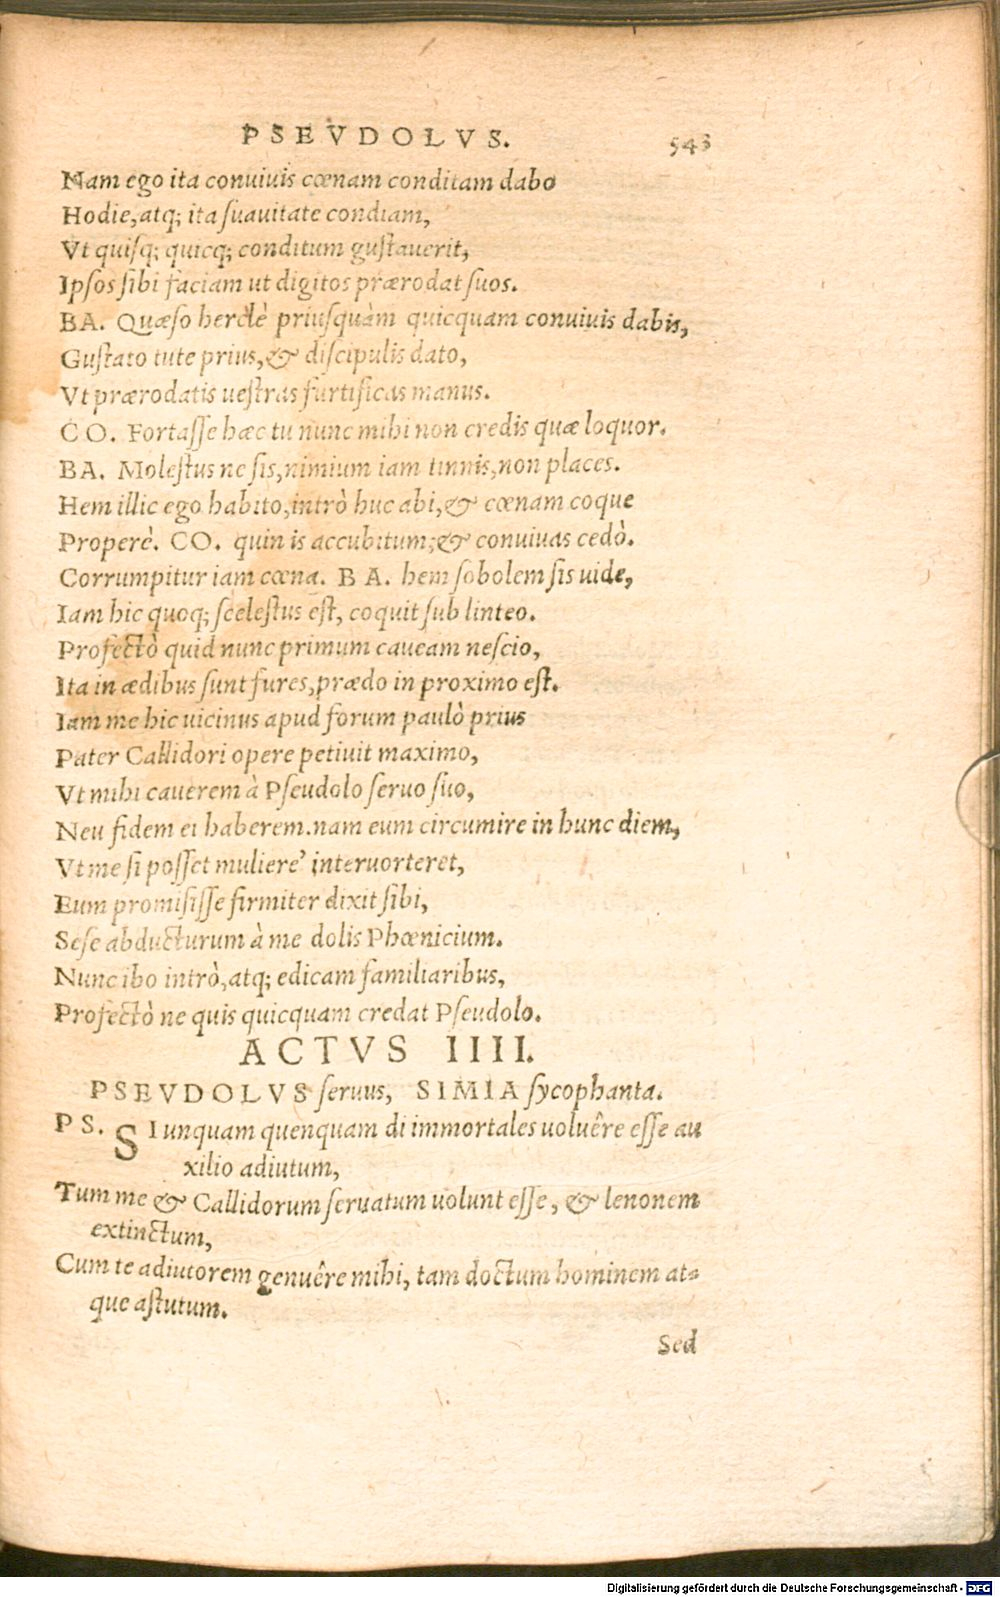 PSEVDOLVS. 543
Nam ego ita conuiuis cœnam conditam dabo
Hodie, atq; ita suauitate condiam,
Vt quisq; quicq; conditum gustauerit,
Ipsos sibi faciam ut digitos prærodat suos.
BA. Quæso herclè priusquàm quicquam conuiuis dabis,
Gustato tute prius, & discipulis dato,
Vt prærodatis uestras furtificas manus.
CO. Fortasse hæc tu nunc mihi non credis quæ loquor.
BA. Molestus ne sis, nimium iam tinnis, non places.
Hem illic ego habito, intrò huc abi, & cœnam coque
Properè. CO. quin is accubitum; & conuiuas cedò.
Corrumpitur iam cœna. BA. hem sobolem sis uide,
Iam hic quoq; scelestus est, coquit sub linteo.
Profectò quid nunc primum caueam nescio,
Ita in ædibus sunt fures, prædo in proximo est.
Iam me hic uicinus apud forum paulò prius
Pater Callidori opere petiuit maximo,
Vt mihi cauerem à Pseudolo seruo suo,
Neu fidem ei haberem. nam eum circumire in hunc diem,
Vt me si posset muliere' interuorteret,
Eum promisisse firmiter dixit sibi,
Sese abducturum à me dolis Phœnicium.
Nunc ibo intrò, atq; edicam familiaribus,
Profectò ne quis quicquam credat Pseudolo.
ACTVS IIII.
PSEVDOLVS seruus, SIMIA sycophanta.
PS. SI unquam quenquam di immortales uoluêre esse au
xilio adiutum,
Tum me & Callidorum seruatum uolunt esse, & lenonem
extinctum,
Cum te adiutorem genuêre mihi, tam doctum hominem at-
que astutum.
Sed
Digitalisierung gefördert durch die Deutsche Forschungsgemeinschaft - DFG